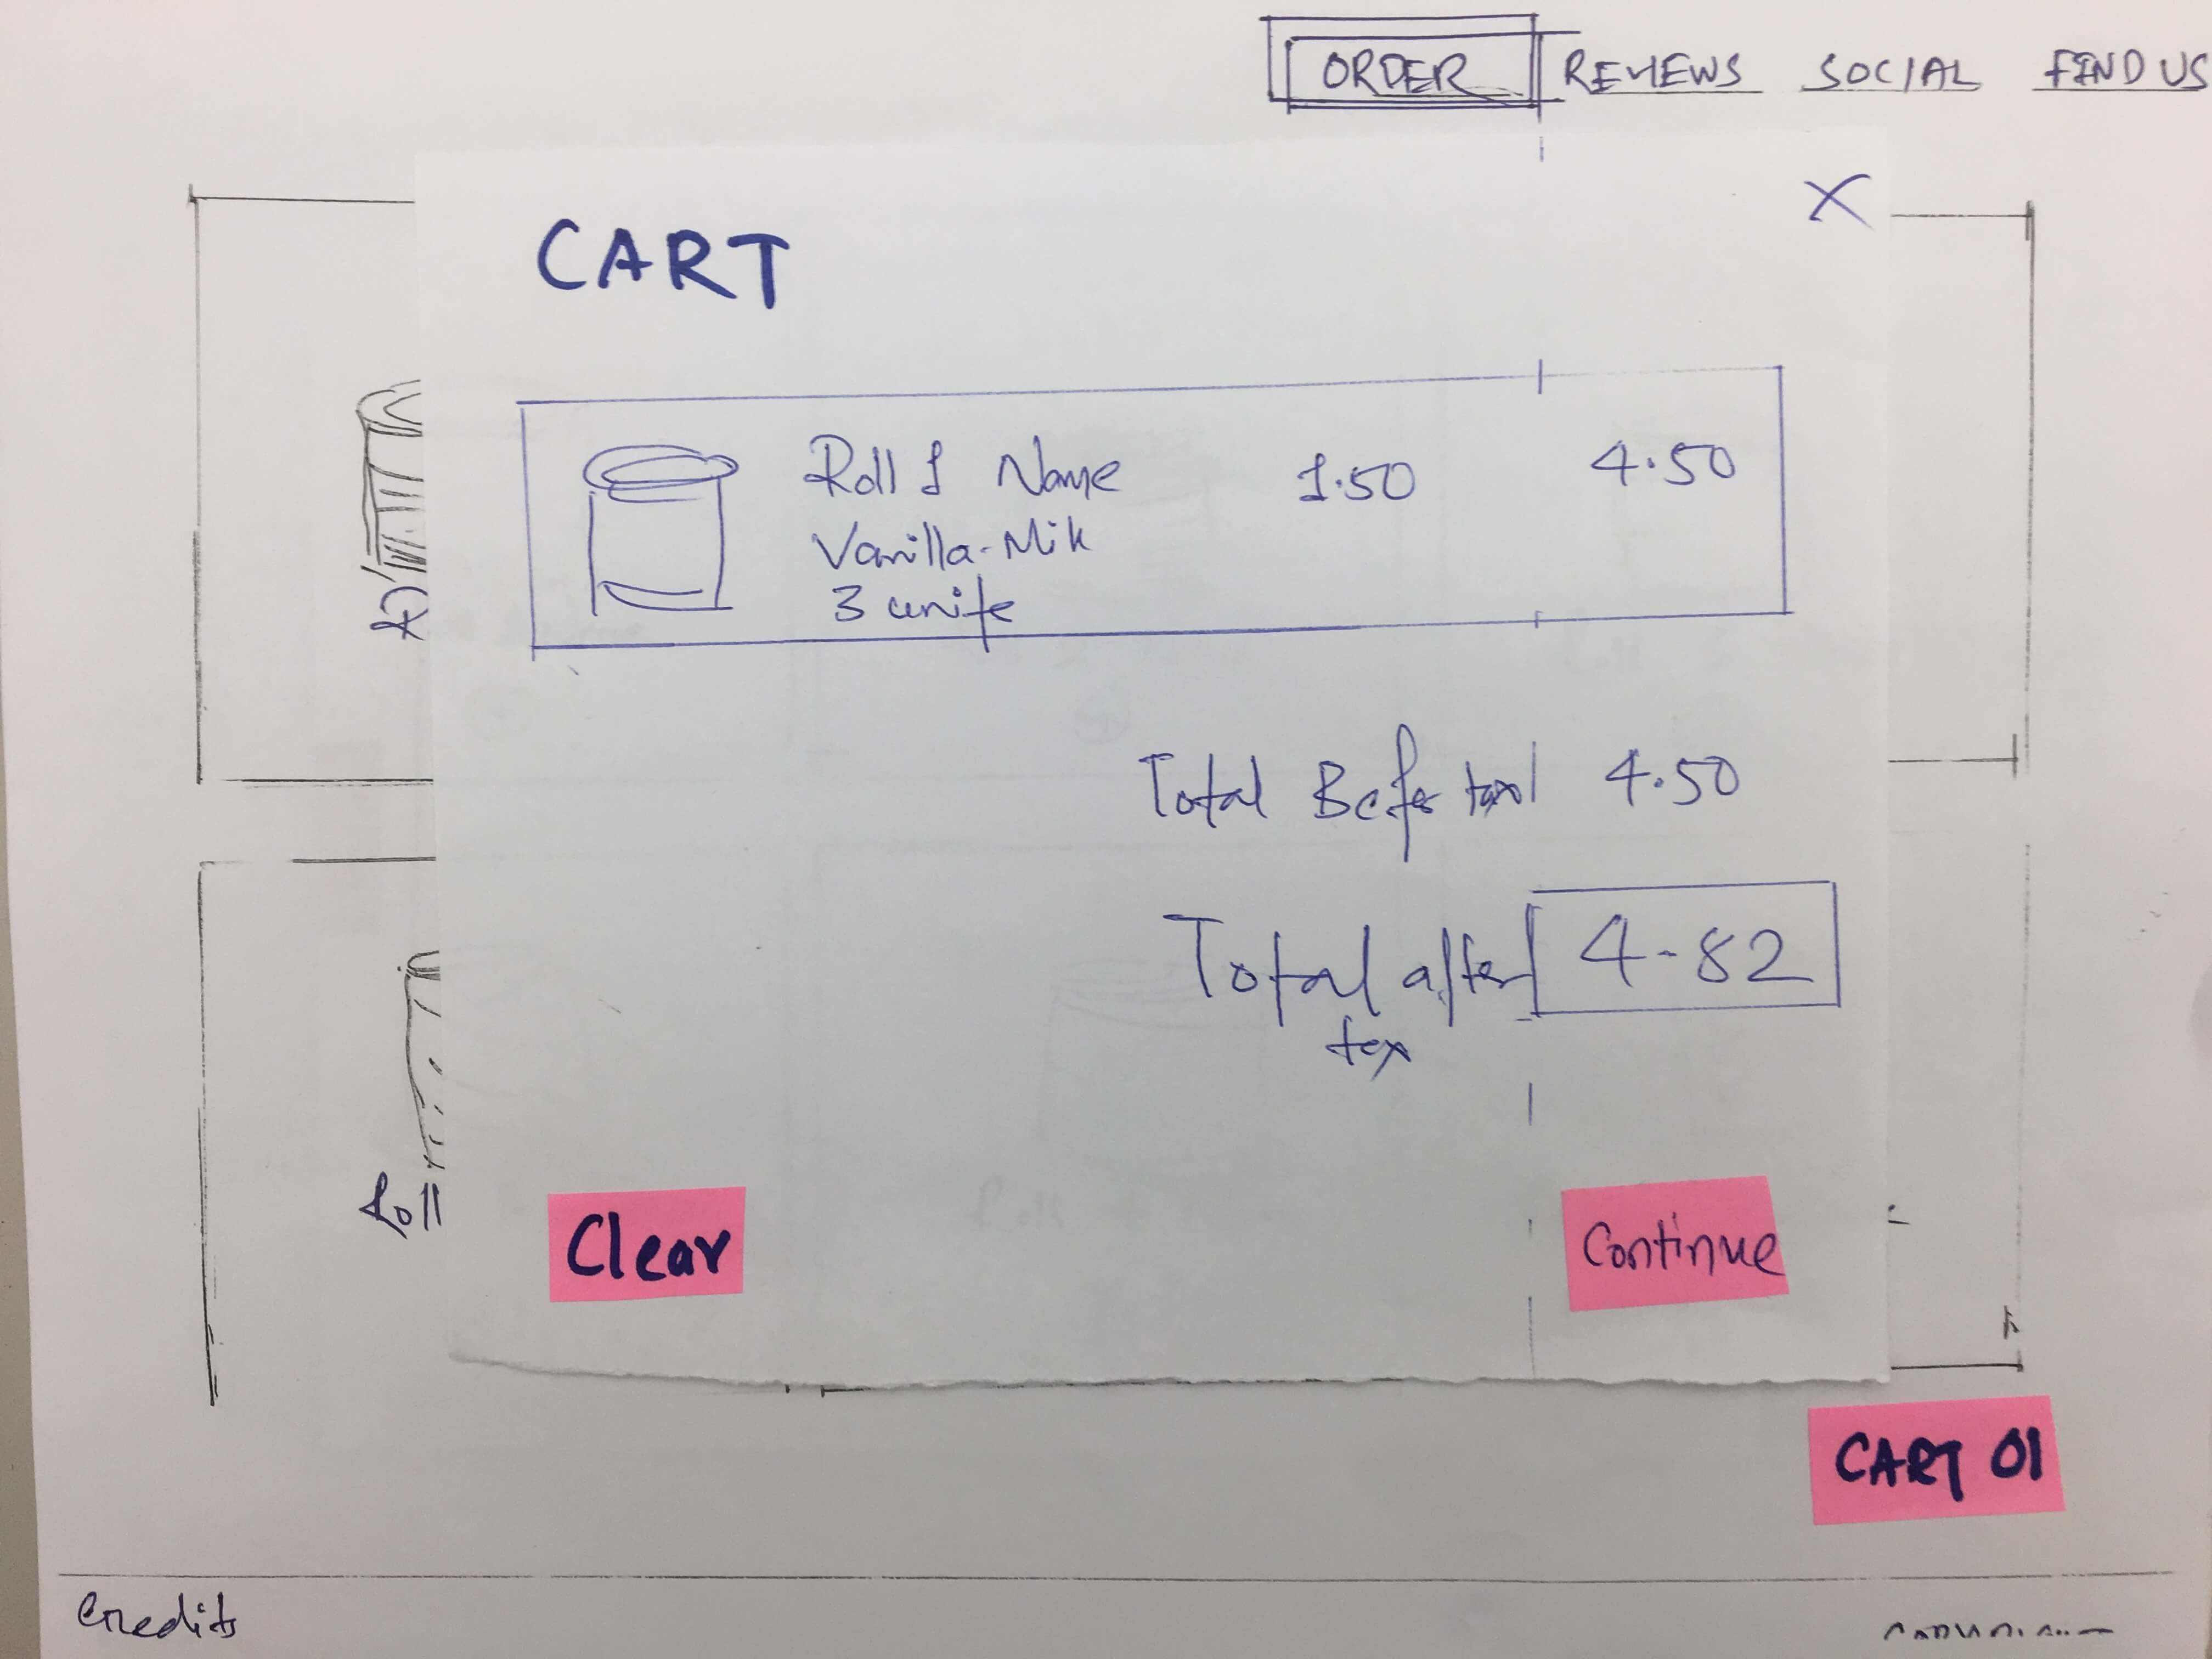 ORDER REVIEWS SOCIAL FIND US
X
CART
Roll 1 Name 1.50 4.50
Vanilla-Milk
3 units
Total Before tax 4.50
Total after 4.82
tax
Roll
Clear Continue
CART 01
Credits